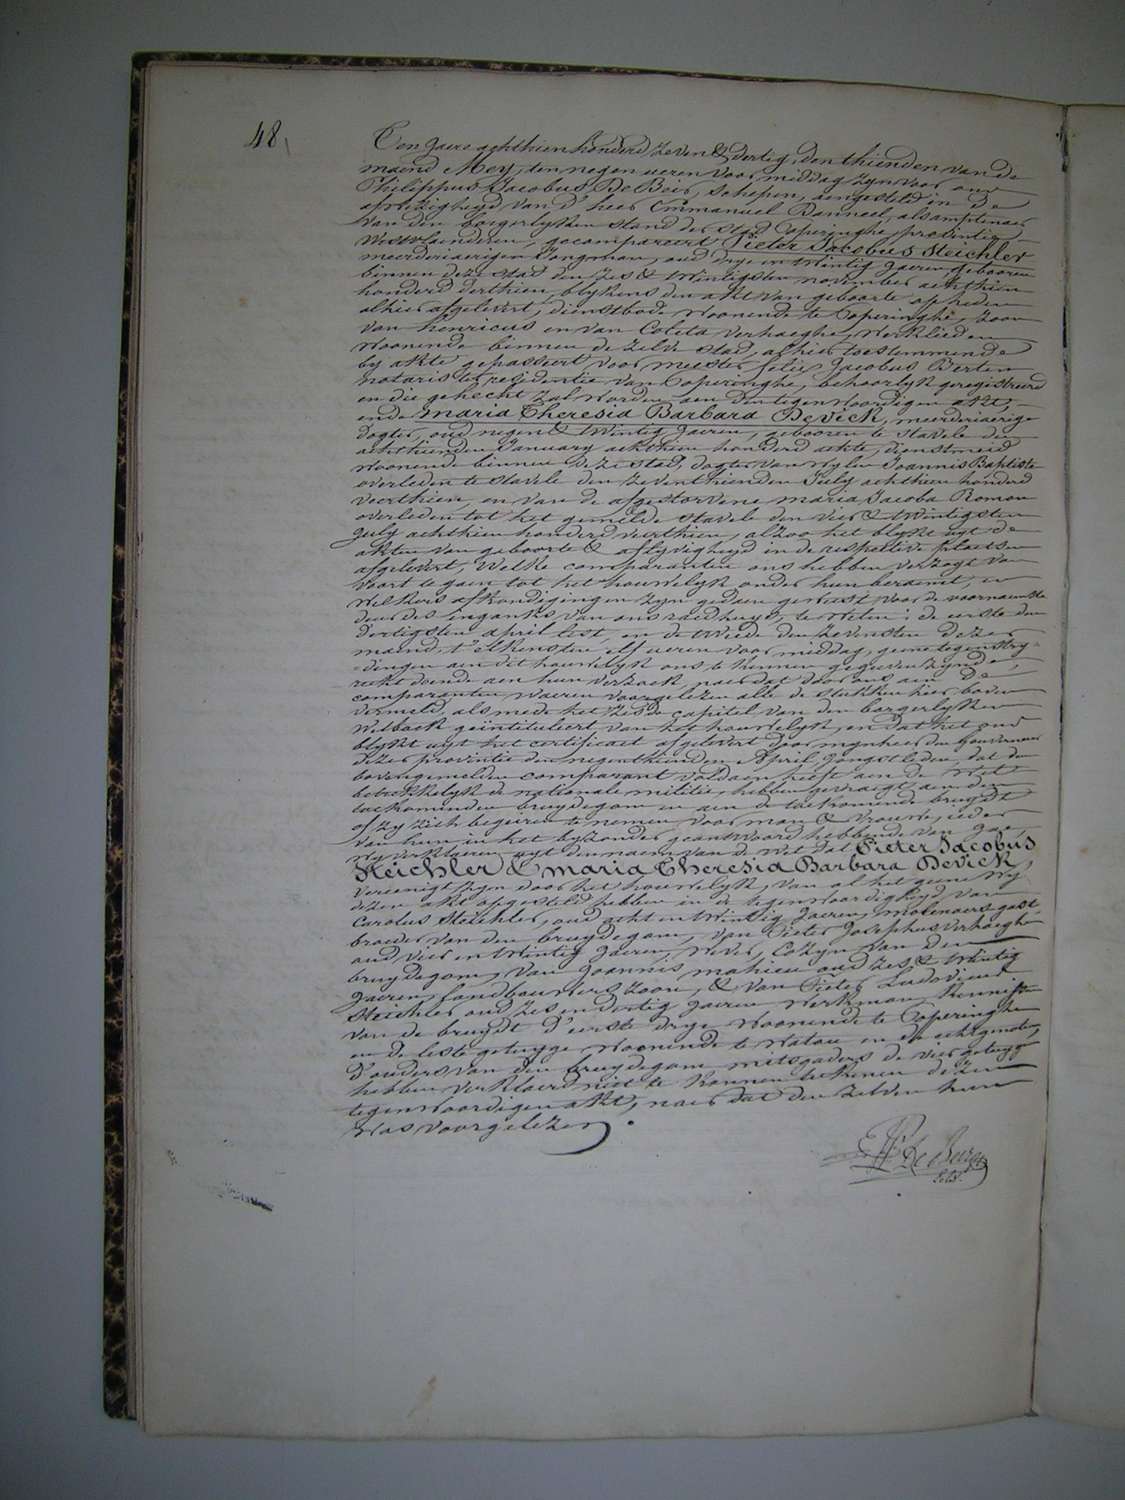 48
Ten jaere achthien honderd zeven & dertig, den thienden van de
maend Mey, ten negen ueren voor middag zyn voor ons
Philippus Jacobus De Beir, schepen, aengesteld in de
afwezigheyd van d'heer Emmanuel Banneel, als amptenaer
van den borgerlyken stand der stad Poperinghe, provintie
Westvlaenderen, gecompareert Pieter Jacobus Steichler
meerderiaerigen Jongman, oud drye en twintig Jaeren, gebooren
binnen deze stad den zes & twintigsten november achthien
honderd derthien, blykens den akt van geboorte op heden
alhier afgelevert, dienstbode woonende te Poperinghe, zoon
van henricus en van Coleta Verhaeghe, werklieden
woonende binnen de zelve stad, alhier toestemmende
by akte gepasseert voor meester felix Jacobus Berten
notaris ter residentie van Poperinghe, behoorlyk geregistreerd
en die gehecht zal worden aen den tegenwoordigen akt,
ende maria Theresia Barbara Devick, meerderiaerige
dogter, oud negen & twintig Jaeren, gebooren te Stavele den
achthienden January achthien honderd achte, dienstmeid
woonende binnen deze stad, dogter van wylen Joannis Baptiste
overleden te Stavele den zeventhienden July achthien honderd
veerthien, en van de afgestorvene maria Jacoba Roman
overleden tot het gemelde Stavele den vier & twintigsten
July achthien honderd veerthien, alzoo het blykt uyt de
akten van geboorte & aflyvigheyd in de respective plaetsen
afgelevert, Welke comparanten ons hebben verzogt van
voort te gaen tot het houwelyk onder hun beraemt, en
welkers afkondigingen zyn gedaen geweest voor de voornaemste
deur des ingangs van ons raedhuys, te weten: de eerste den
dertigsten april lest, en de tweede den zevensten dezer
maend, t'elkensten elf ueren voor middag, geene tegenstry-
-dingen aen dit houwelyk ons te kennen gegeven zynde,
recht doende aen hun verzoek, naer dat door ons aen de
comparanten waeren voorgelezen alle de stukken hier boven
vermeld, als mede het zesde capitel van den borgerlyken
Wetboek geintituleert van het houwelyk, en dat het ons
blykt uyt het certificaet afgelevert door mynheer den Gouverneur
dezer provintie den negenthienden April Jongstleden, dat den
bovengemelden comparant voldaen heeft aen de Wet
betrekkelyk de nationale militie, hebben gevraegt aen den
toekomenden bruydegom en aen de toekomende bruydt
of zy zich begeiren te nemen voor man & vrouwe, ieder
van hun in het byzonder geantwoord hebbende van Jae,
wy verklaeren uyt den naem van de Wet dat Pieter Jacobus
Steichler & maria Theresia Barbara Devick,
vereenigt zyn door het houwelyk, van al het geene wy
dezen akt opgesteld hebben in de tegenwoordigheyd van
Carolus Steichler, oud acht en twintig Jaeren, molenaersgast,
broeder van den bruydegom, van Pieter Josephus Verhaeghe
oud vier en twintig Jaeren, wever, Cozyn van den
bruydegom, van Joannis mahieu oud zes & twintig
Jaeren, landbouwers zoon, & van Pieter Ludovicus
Steichler oud zes en dertig Jaeren werkman, kennisten
van de bruydt d'eerste drye woonende te Poperinghe
en de leste getuyge woonende te Watou en de echtgenoten
d'ouders van den bruydegom, mitsgaders de vier getuygen
hebben verklaerd niet te konnen teekenen dezen
tegenwoordigen akt, naer dat den zelven hun
was voorgelezen.